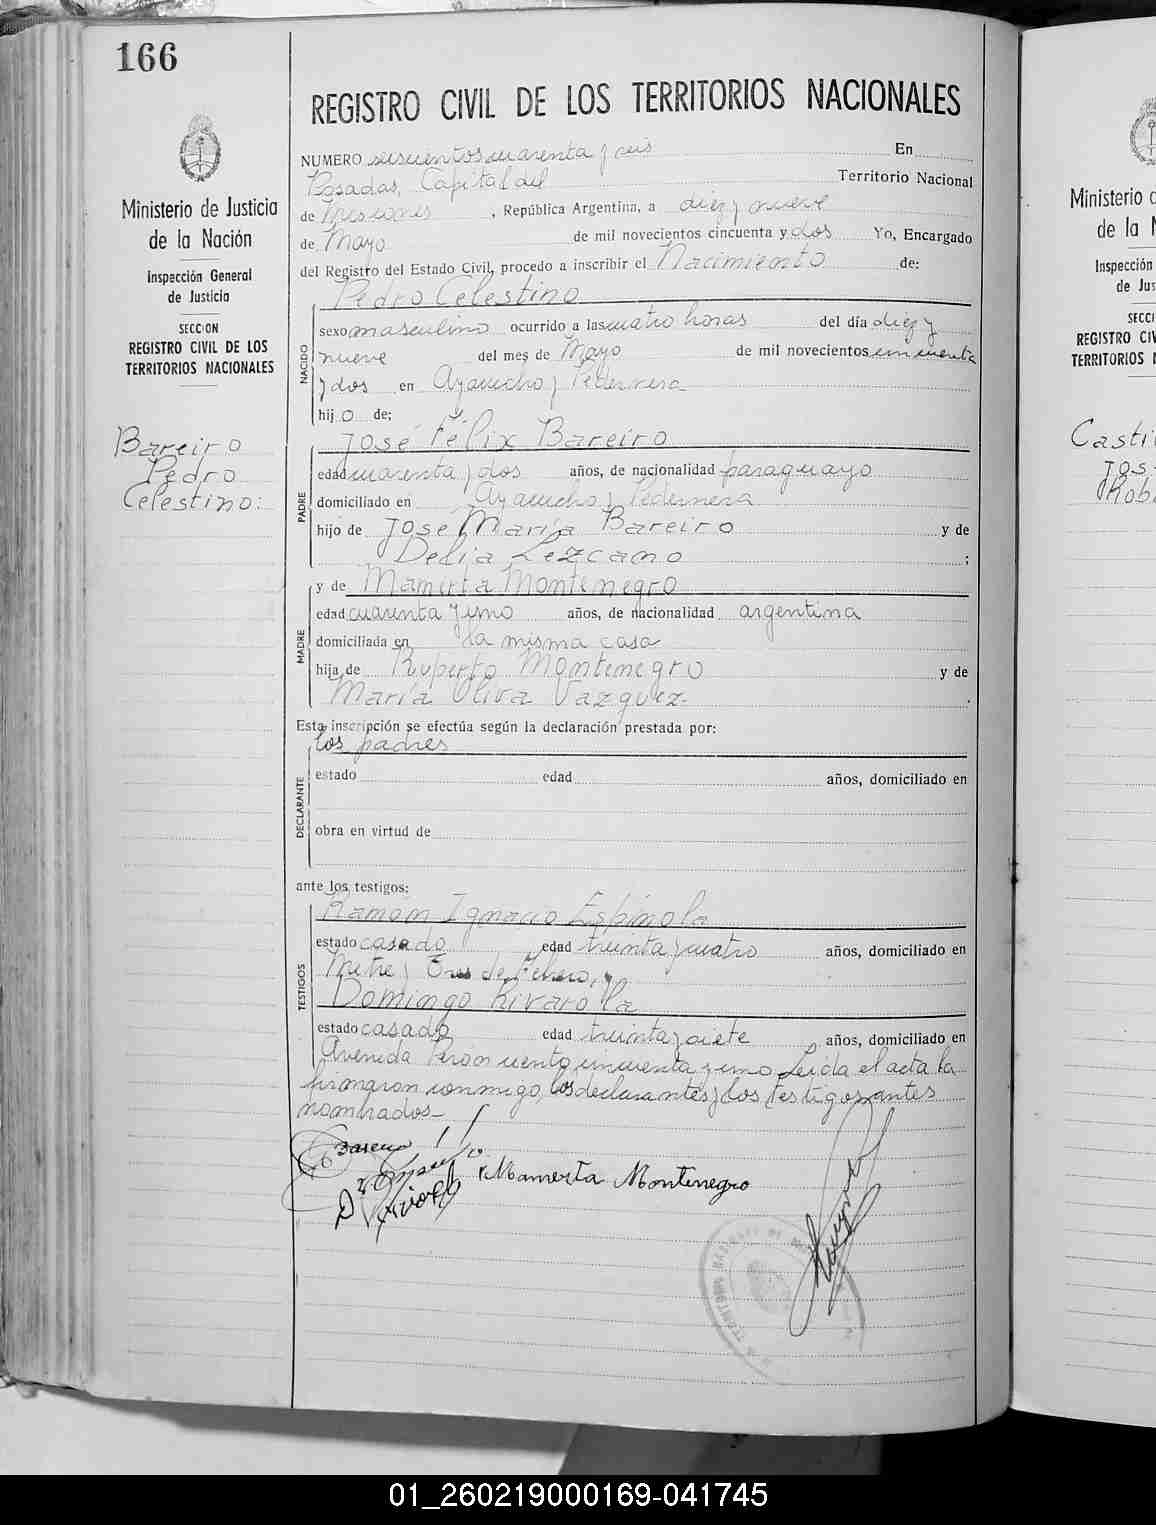 166
REGISTRO CIVIL DE LOS TERRITORIOS NACIONALES
Ministerio de Justicia
de la Nación
Inspección General
de Justicia
SECCION
REGISTRO CIVIL DE LOS
TERRITORIOS NACIONALES
Bareiro
Pedro
Celestino:
NUMERO seiscientos cuarenta y seis En
Posadas, Capital del Territorio Nacional
de Misiones, República Argentina, a diez y nueve
de Mayo de mil novecientos cincuenta y dos Yo, Encargado
del Registro del Estado Civil, procedo a inscribir el Nacimiento de:
NACIDO
Pedro Celestino
sexo masculino ocurrido a las cuatro horas del día diez y
nueve del mes de Mayo de mil novecientos cincuenta
y dos en Ayacucho y Pedernera
hijo de:
PADRE
José Félix Bareiro
edad cuarenta y dos años, de nacionalidad paraguayo
domiciliado en Ayacucho y Pedernera
hijo de José María Bareiro y de
Delia Lezcano ;
MADRE
y de Mamerta Montenegro
edad cuarenta y uno años, de nacionalidad argentina
domiciliada en la misma casa
hija de Ruperto Montenegro y de
María Oliva Vazquez.
Esta inscripción se efectúa según la declaración prestada por:
los padres
DECLARANTE
estado edad años, domiciliado en
obra en virtud de
ante los testigos:
TESTIGOS
Ramón Ignacio Espinola
estado casado edad treinta y cuatro años, domiciliado en
Mitre y Tres de Febrero, y
Domingo Rivarola
estado casado edad treinta y siete, años, domiciliado en
Avenida Perón ciento cincuenta y uno. Leída el acta la
firmaron conmigo, los declarantes y los testigos antes
nombrados-
Bareiro
D Rivarola
Mamerta Montenegro
Ministerio d
de la N
Inspección
de Jus
SECCI
REGISTRO CIV
TERRITORIOS N
Casti
Jos
Rob
01_260219000169-041745